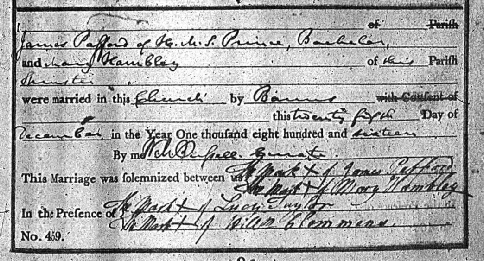 of Parish
James Pafford of H.M.S. Prince, Bachelor
and Mary Hambley of this Parish
Spinster
were married in this Church by Banns with Consent of
this twenty fifth Day of
December in the Year One thousand eight hundred and sixteen
By me Curate
This Marriage was solemnized between us The Mark X of James Pafford
The Mark X of Mary Hambley
In the Presence of The Mark X of Lucy Taylor
The Mark X of Willm Clemmens
No. 49.